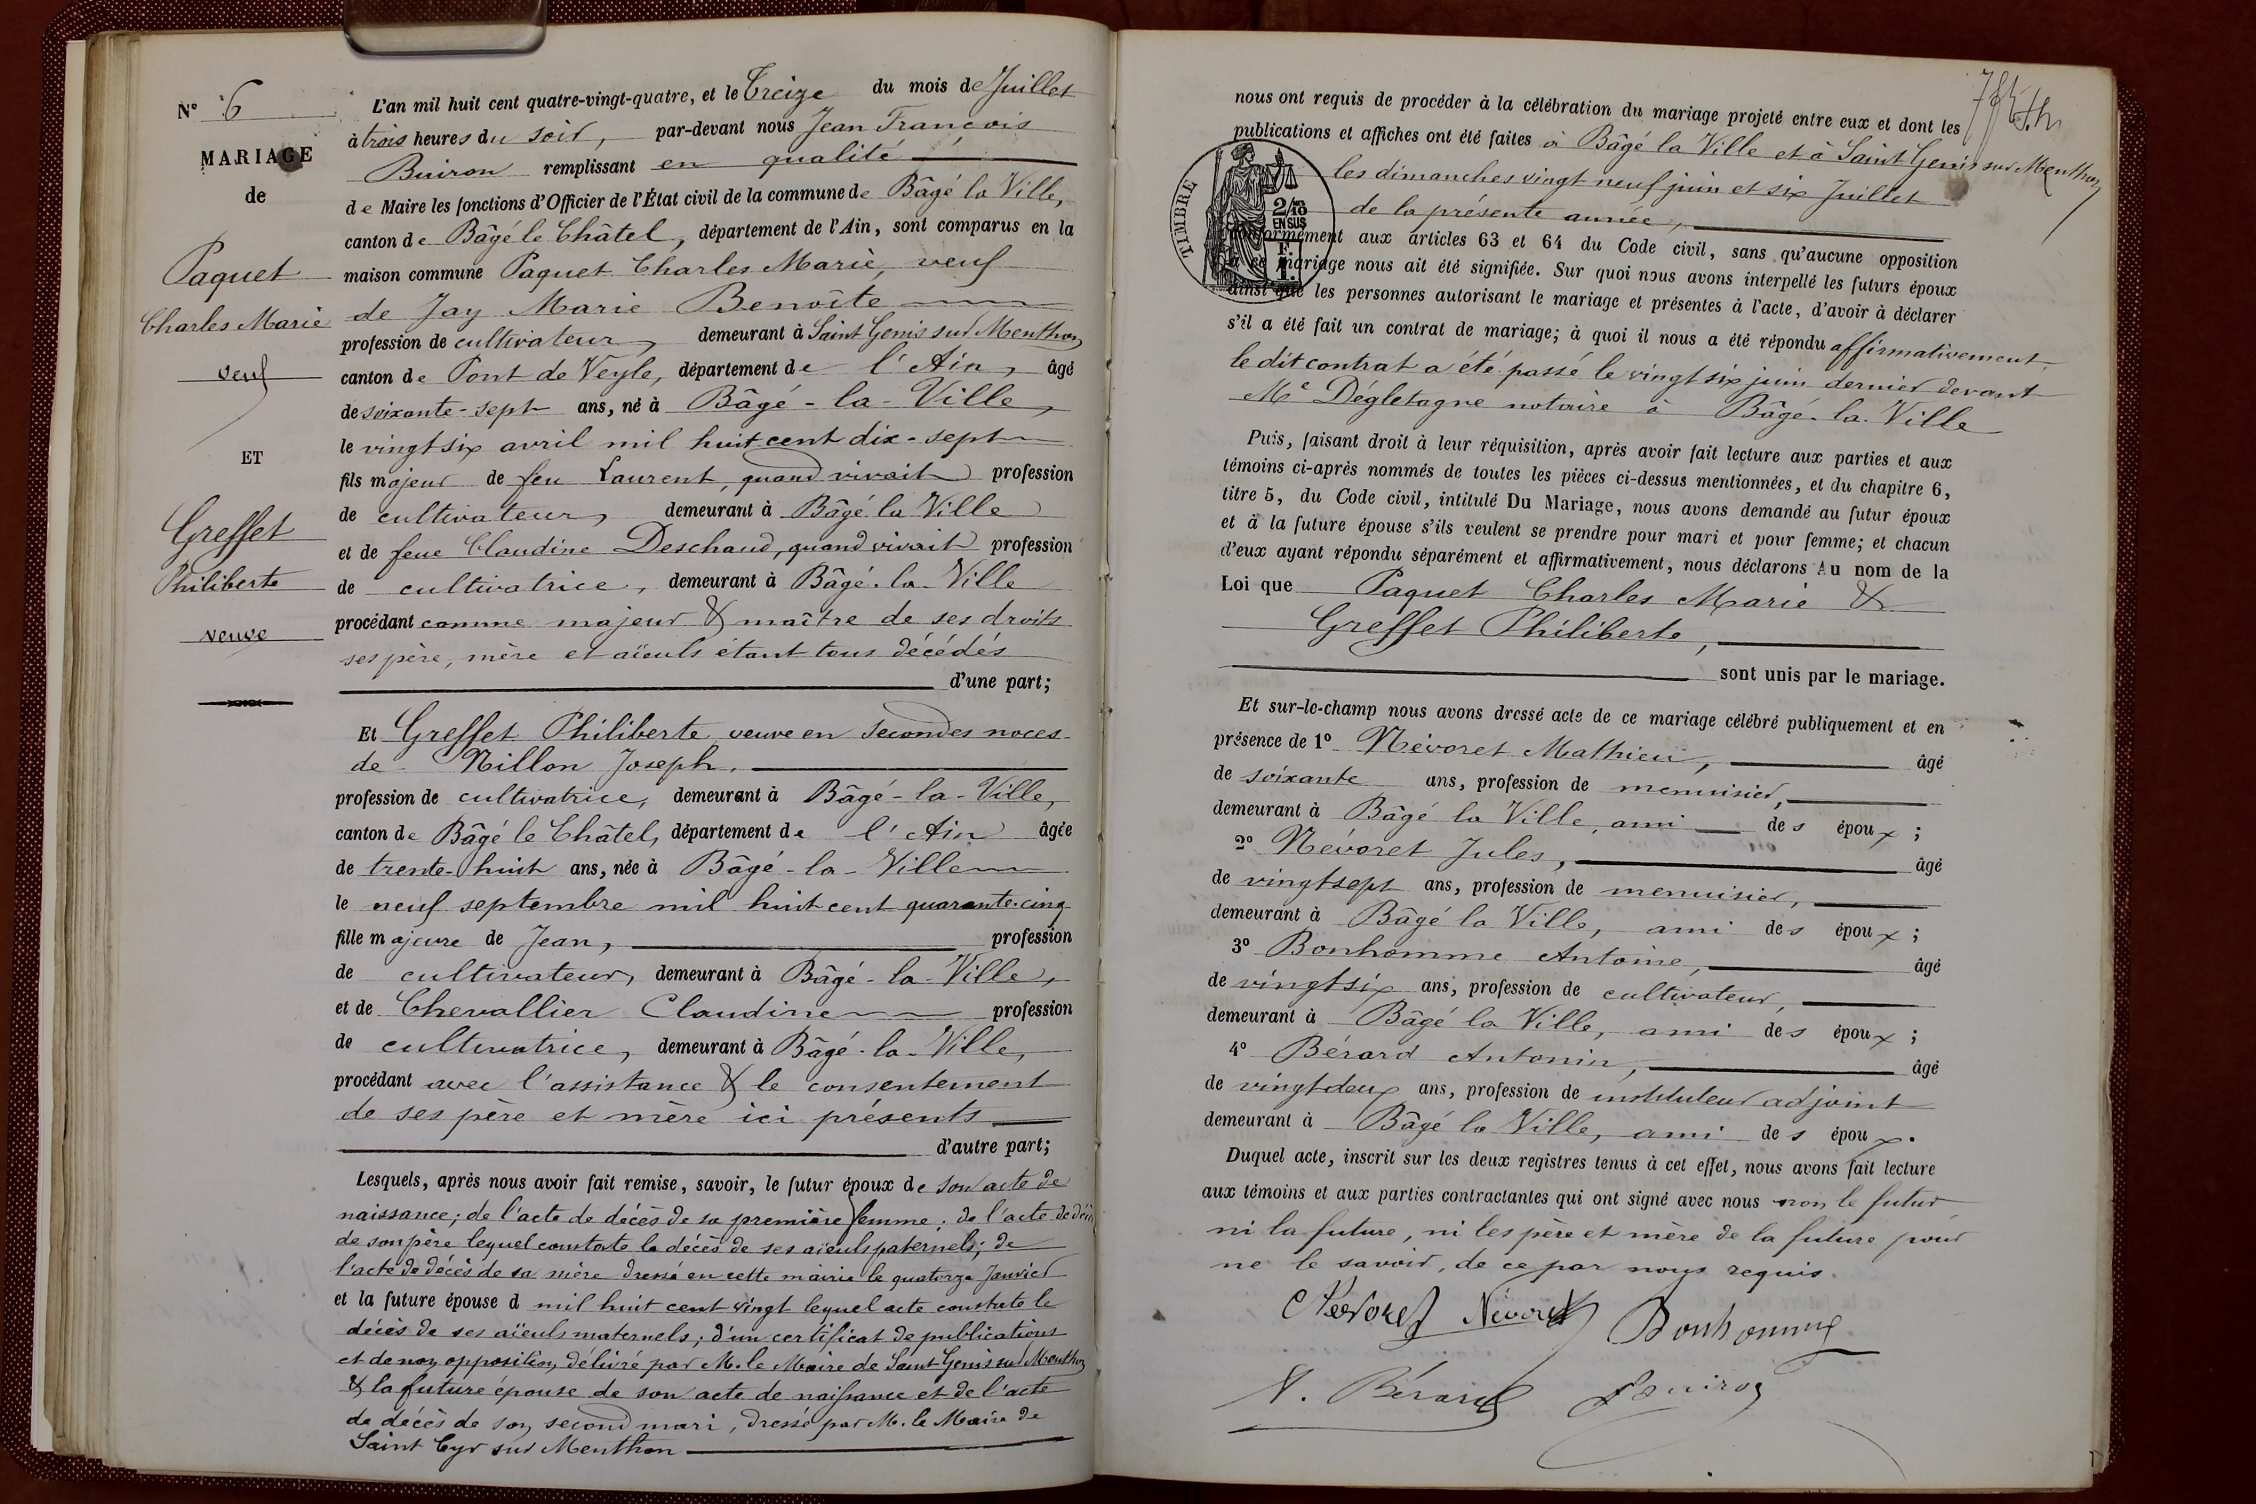 N° 6
MARIAGE
de
Paquet
Charles Marie
veuf
ET
Greffet
Philiberte
veuve
L'an mil huit cent quatre-vingt-quatre, et le Treize du mois de Juillet
à trois heures du soir, par-devant nous Jean François
Buiron remplissant en qualité
de Maire les fonctions d'Officier de l'État civil de la commune de Bâgé la Ville,
canton de Bâgé le Châtel, département de l'Ain, sont comparus en la
maison commune Paquet Charles Marie, veuf
de Jay Marie Benoîte
profession de cultivateur, demeurant à Saint Genis sur Menthon
canton de Pont de Veyle, département de l'Ain, âgé
de soixante-sept ans, né à Bâgé-la-Ville,
le vingt six avril mil huit cent dix-sept
fils majeur de feu Laurent, quand vivait profession
de cultivateur, demeurant à Bâgé la Ville
et de feue Claudine Deschaud, quand vivait profession
de cultivatrice, demeurant à Bâgé-la-Ville
procédant comme majeur & maître de ses droits
ses père, mère et aïeuls étant tous décédés
d'une part;
Et Greffet Philiberte veuve en secondes noces
de Nillon Joseph.
profession de cultivatrice, demeurant à Bâgé-la-Ville,
canton de Bâgé le Châtel, département de l'Ain âgée
de trente-huit ans, née à Bâgé-la-Ville
le neuf septembre mil huit cent quarante-cinq
fille majeure de Jean, profession
de cultivateur, demeurant à Bâgé-la-Ville,
et de Chevallier Claudine profession
de cultivatrice, demeurant à Bâgé-la-Ville,
procédant avec l'assistance & le consentement
de ses père et mère ici présents
d'autre part;
Lesquels, après nous avoir fait remise, savoir, le futur époux de son acte de
naissance; de l'acte de décès de sa première femme; de l'acte de décès
de son père lequel constate le décès de ses aïeuls paternels; de
l'acte de décès de sa mère dressé en cette mairie le quatorze Janvier
et la future épouse d mil huit cent vingt lequel acte constate le
décès de ses aïeuls maternels; d'un certificat de publications
et de non opposition, délivré par M. le Maire de Saint Genis sur Menthon
& la future épouse de son acte de naissance et de l'acte
de décès de son second mari, dressé par M. le Maire de
Saint Cyr sur Menthon
nous ont requis de procéder à la célébration du mariage projeté entre eux et dont les
publications et affiches ont été faites à Bâgé la Ville et à Saint Genis sur Menthon
les dimanches vingt neuf juin et six Juillet
de la présente année,
TIMBRE
2/10
EN SUS
F.
1.
conformément aux articles 63 et 64 du Code civil, sans qu'aucune opposition
à ce mariage nous ait été signifiée. Sur quoi nous avons interpellé les futurs époux
ainsi que les personnes autorisant le mariage et présentes à l'acte, d'avoir à déclarer
s'il a été fait un contrat de mariage; à quoi il nous a été répondu affirmativement
le dit contrat a été passé le vingt six juin dernier devant
Me Dégletagne notaire à Bâgé-la-Ville
Puis, faisant droit à leur réquisition, après avoir fait lecture aux parties et aux
témoins ci-après nommés de toutes les pièces ci-dessus mentionnées, et du chapitre 6,
titre 5, du Code civil, intitulé Du Mariage, nous avons demandé au futur époux
et à la future épouse s'ils veulent se prendre pour mari et pour femme; et chacun
d'eux ayant répondu séparément et affirmativement, nous déclarons Au nom de la
Loi que Paquet Charles Marie &
Greffet Philiberte,
sont unis par le mariage.
Et sur-le-champ nous avons dressé acte de ce mariage célébré publiquement et en
présence de 1° Névoret Mathieu, âgé
de soixante ans, profession de menuisier,
demeurant à Bâgé la Ville, ami des époux;
2° Névoret Jules, âgé
de vingt sept ans, profession de menuisier,
demeurant à Bâgé la Ville, ami des époux;
3° Bonhomme Antoine, âgé
de vingt six ans, profession de cultivateur,
demeurant à Bâgé la Ville, ami des époux;
4° Bérard Antonin, âgé
de vingt deux ans, profession de instituteur adjoint
demeurant à Bâgé la Ville, ami des époux.
Duquel acte, inscrit sur les deux registres tenus à cet effet, nous avons fait lecture
aux témoins et aux parties contractantes qui ont signé avec nous non le futur
ni la future, ni les père et mère de la future pour
ne le savoir, de ce par nous requis.
Névoret Névoret Bonhomme
A. Bérard Buiron